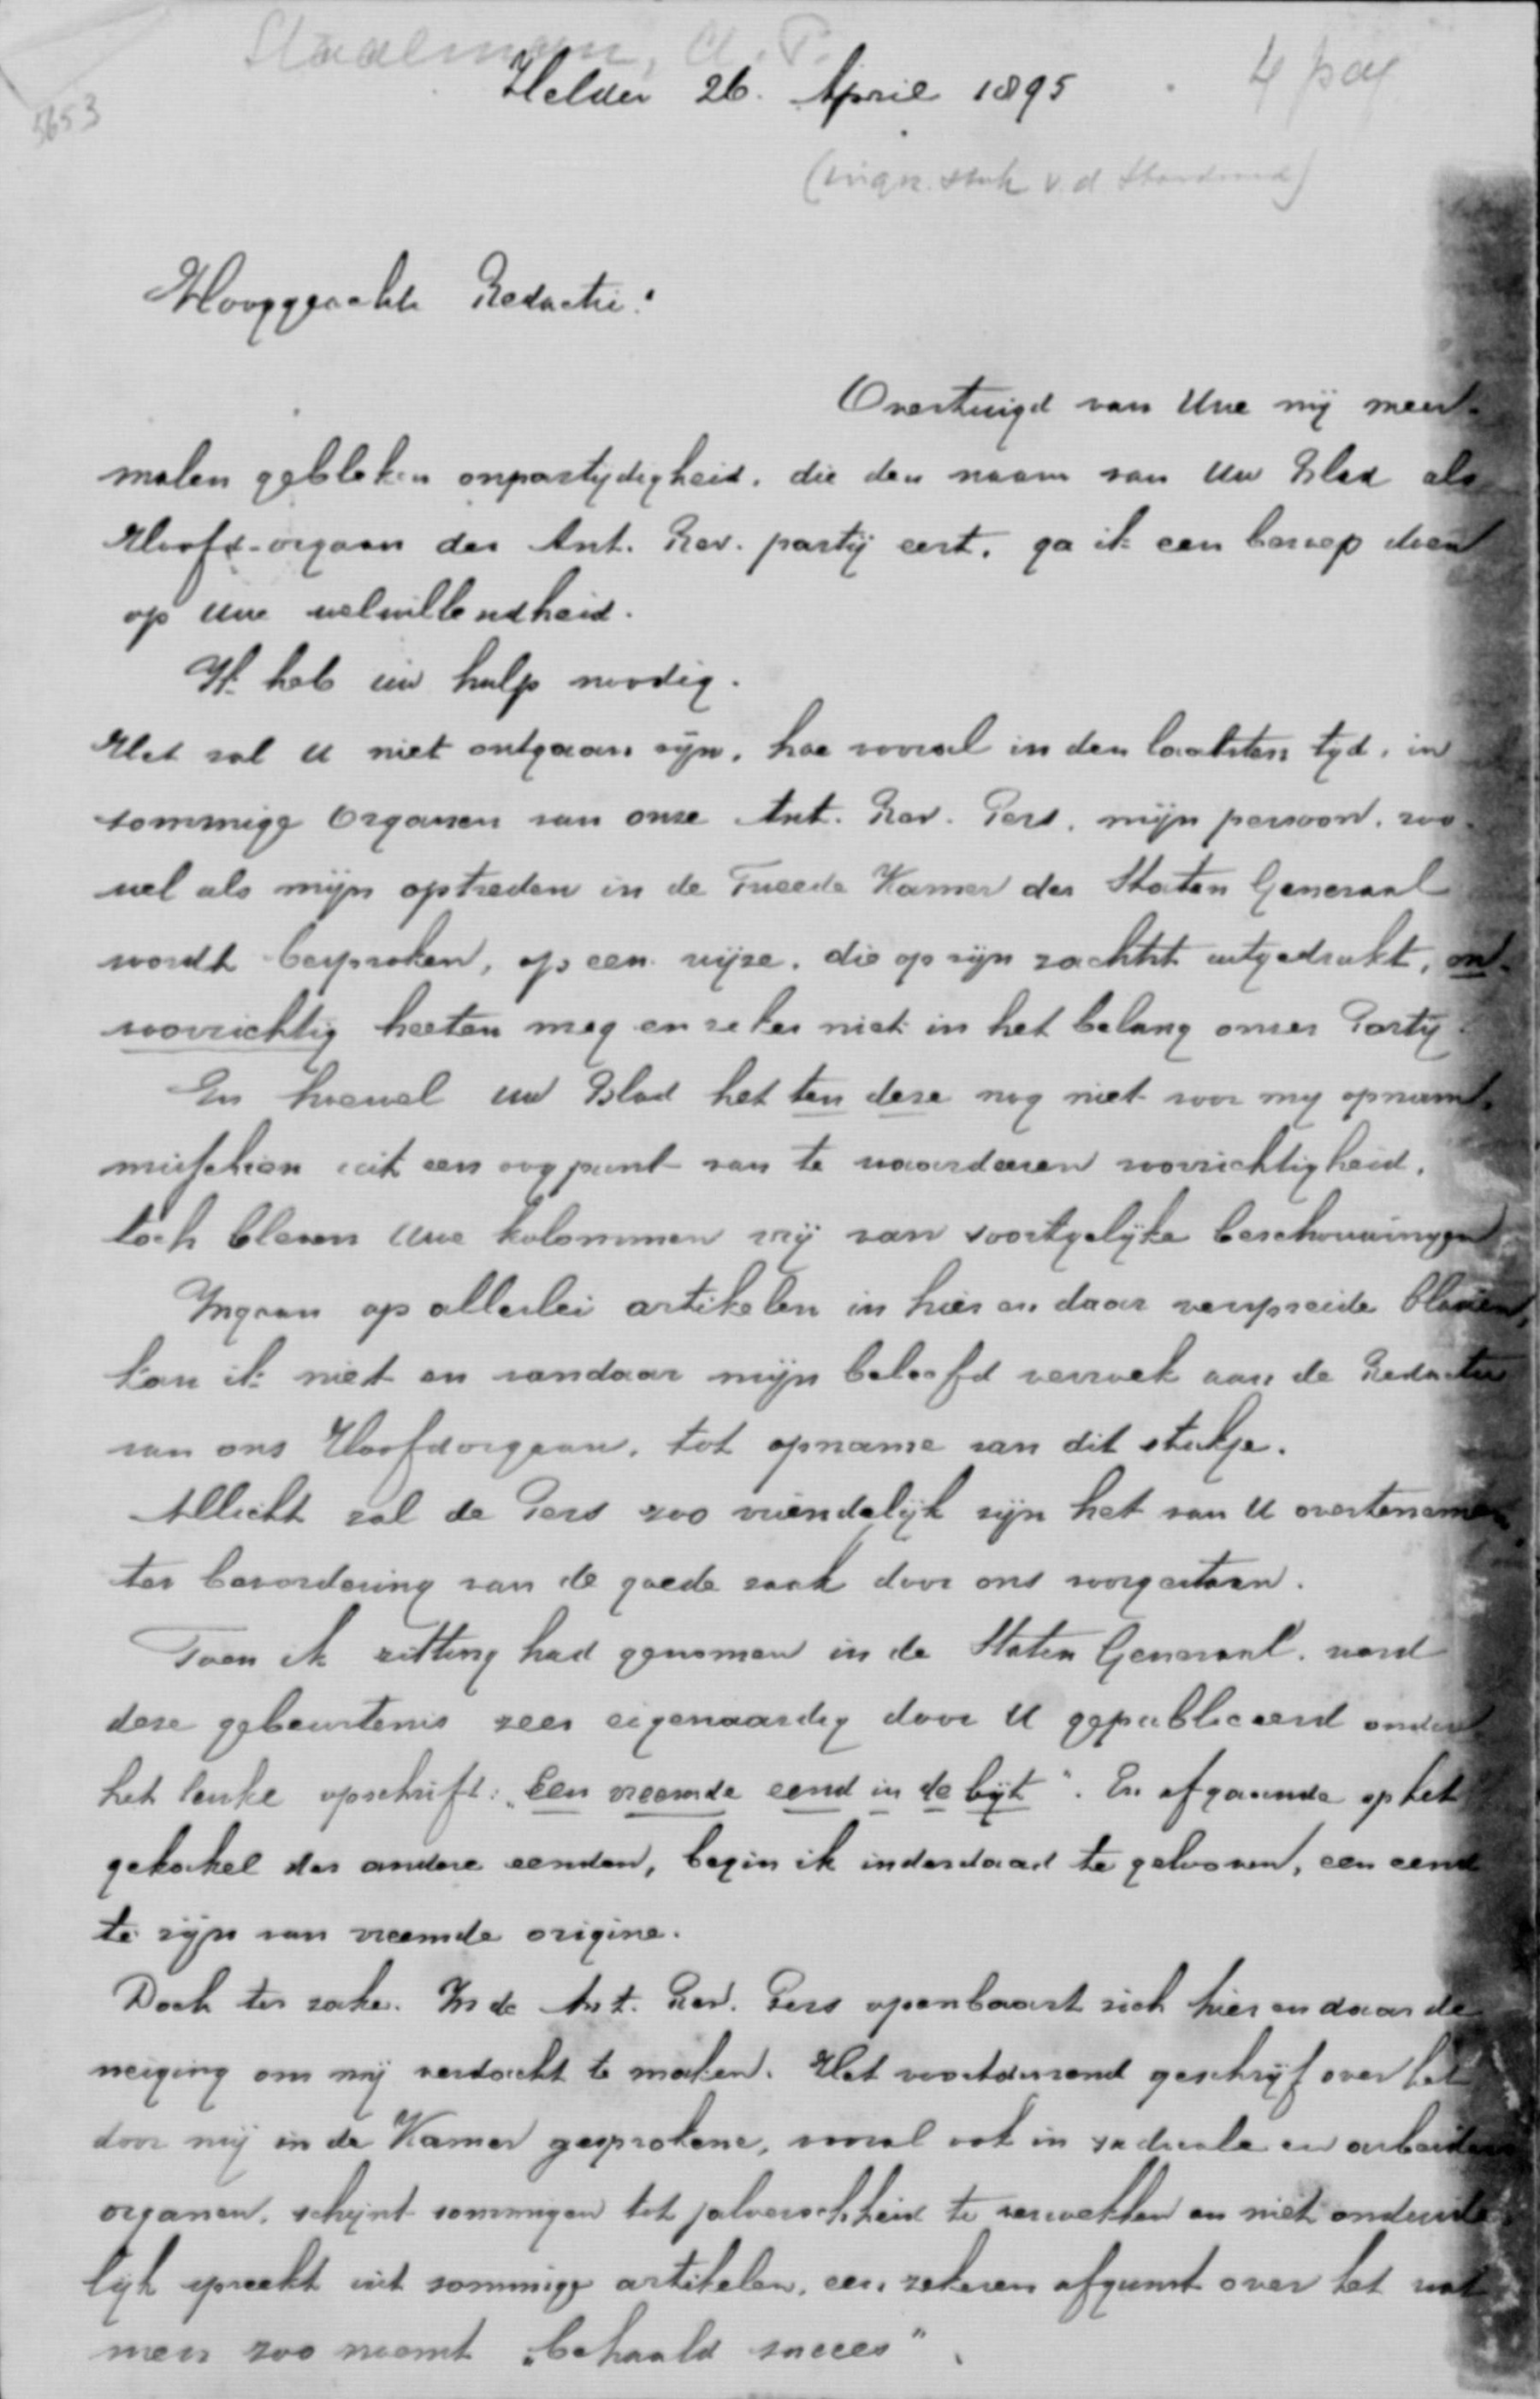 Staalman, A. P.
Helder 26. April 1895
4 pag
5653
(ingez. stuk v.d Standaard)
Hooggeachte Redactie!
Overtuigd van Uwe mij meer-
malen gebleken onpartijdigheid, die den naam van Uw Blad als
Hoofd-orgaan der Ant. Rev. partij eert, ga ik een beroep doen
op uwe welwillendheid.
Ik heb uw hulp noodig.
Het zal U niet ontgaan zijn, hoe vooral in den laatsten tijd, in
sommige Organen van onze Ant. Rev. Pers, mijn persoon, zoo-
wel als mijn optreden in de Tweede Kamer der Staten Generaal
wordt besproken, op een wijze, die op zijn zachtst uitgedrukt, on-
voorzichtig heeten mag en zeker niet in het belang onzer Partij.
En hoewel uw Blad het ten deze nog niet voor mij opnam,
misschien uit een oogpunt van te waardeeren voorzichtigheid,
toch bleven Uwe kolommen vrij van soortgelijke beschouwingen
Ingaan op allerlei artikelen in hier en daar verspreide bladen,
kan ik niet en vandaar mijn beleefd verzoek aan de Redactie
van ons Hoofdorgaan, tot opname van dit stukje.
Allicht zal de Pers zoo vriendelijk zijn het van U overtenemen
ter bevordering van de goede zaak door ons voorgestaan.
Toen ik zitting had genomen in de Staten Generaal, werd
deze gebeurtenis zeer eigenaardig door U gepubliceerd onder
het leuke opschrift: „Een vreemde eend in de bijt". En afgaande op het
gekakel der andere eenden, begin ik inderdaad te gelooven, een eend
te zijn van vreemde origine.
Doch ter zake. In de Ant. Rev. Pers openbaart zich hier en daar de
neiging om mij verdacht te maken. Het voortdurend geschrijf over het
door mij in de Kamer gesprokene, vooral ook in radicale en arbeiders
organen, schijnt sommigen tot jaloerschheid te verwekken en niet onduide-
lijk spreekt uit sommige artikelen, een zekeren afgunst over het wat
men zoo noemt „behaald succes".